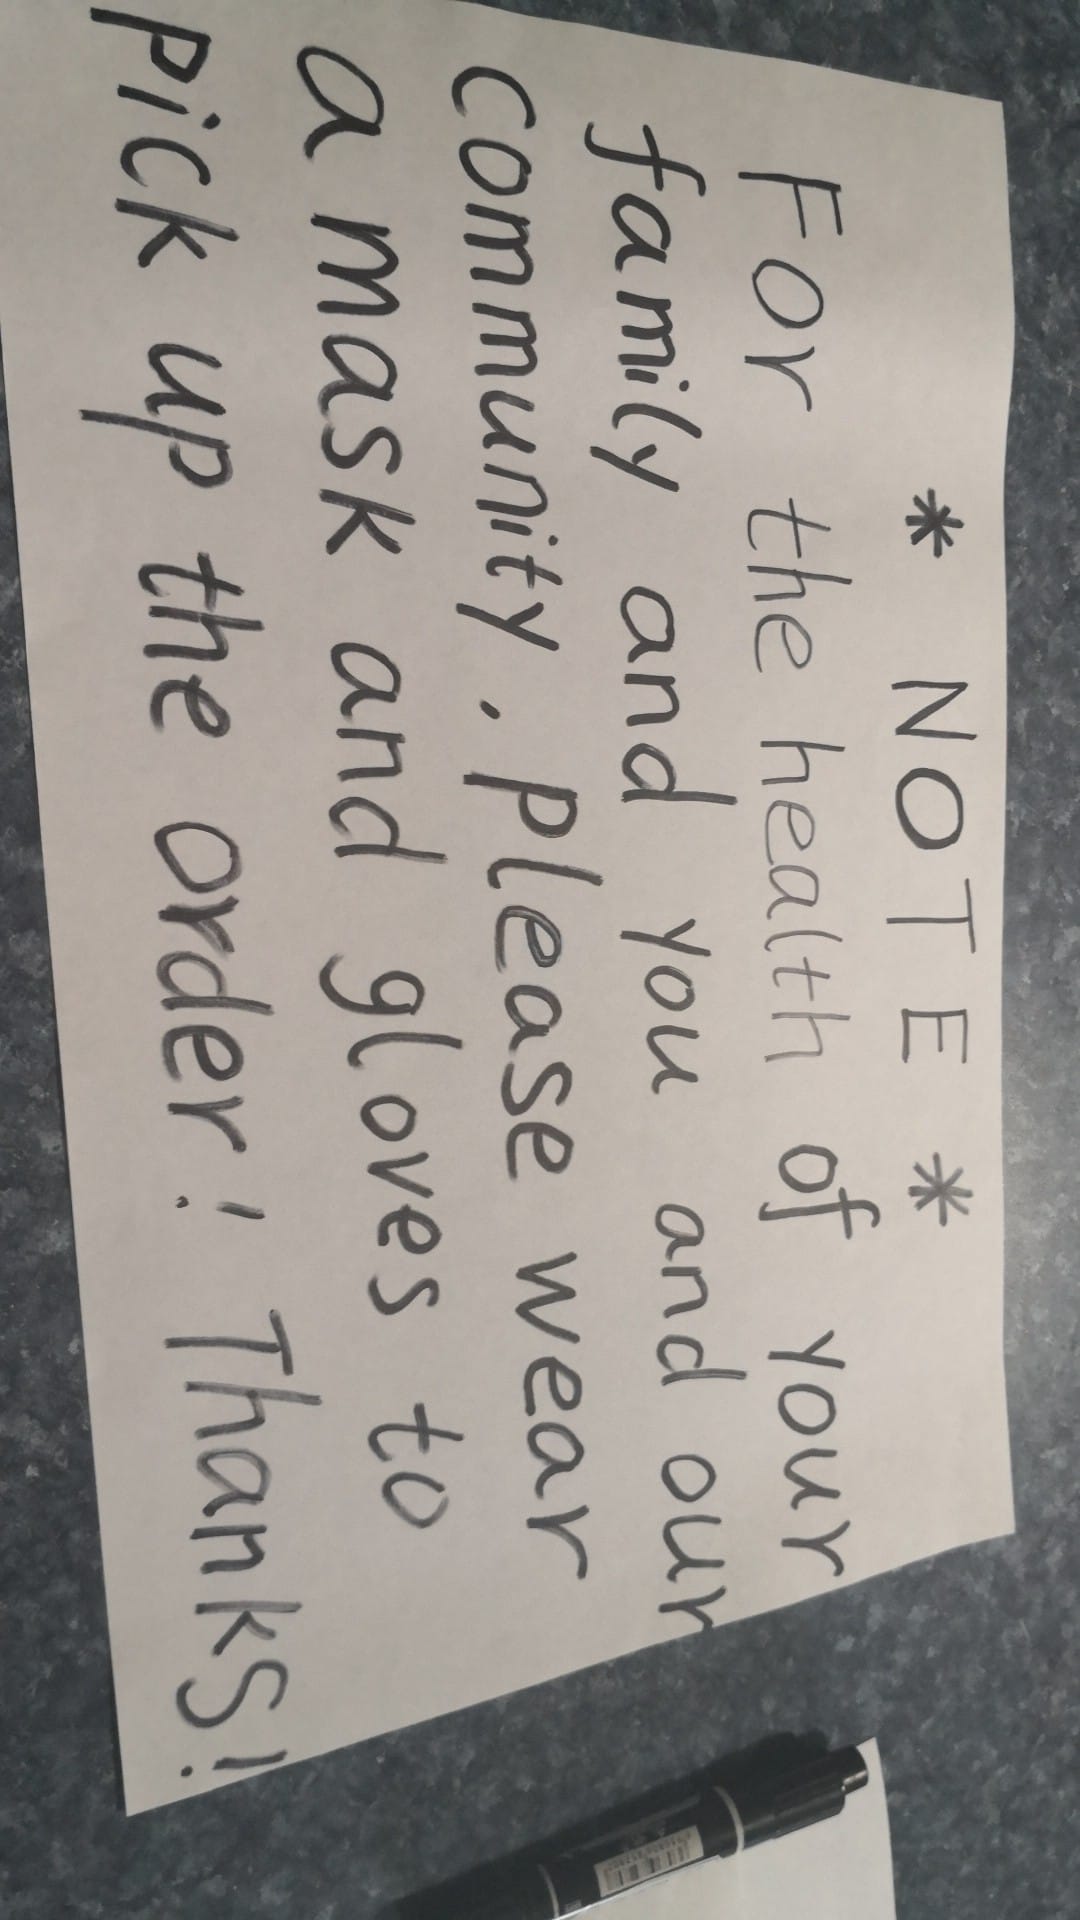 * NOTE *
For the health of your
family and you and our
community, please wear
a mask and gloves to
pick up the order! Thanks!